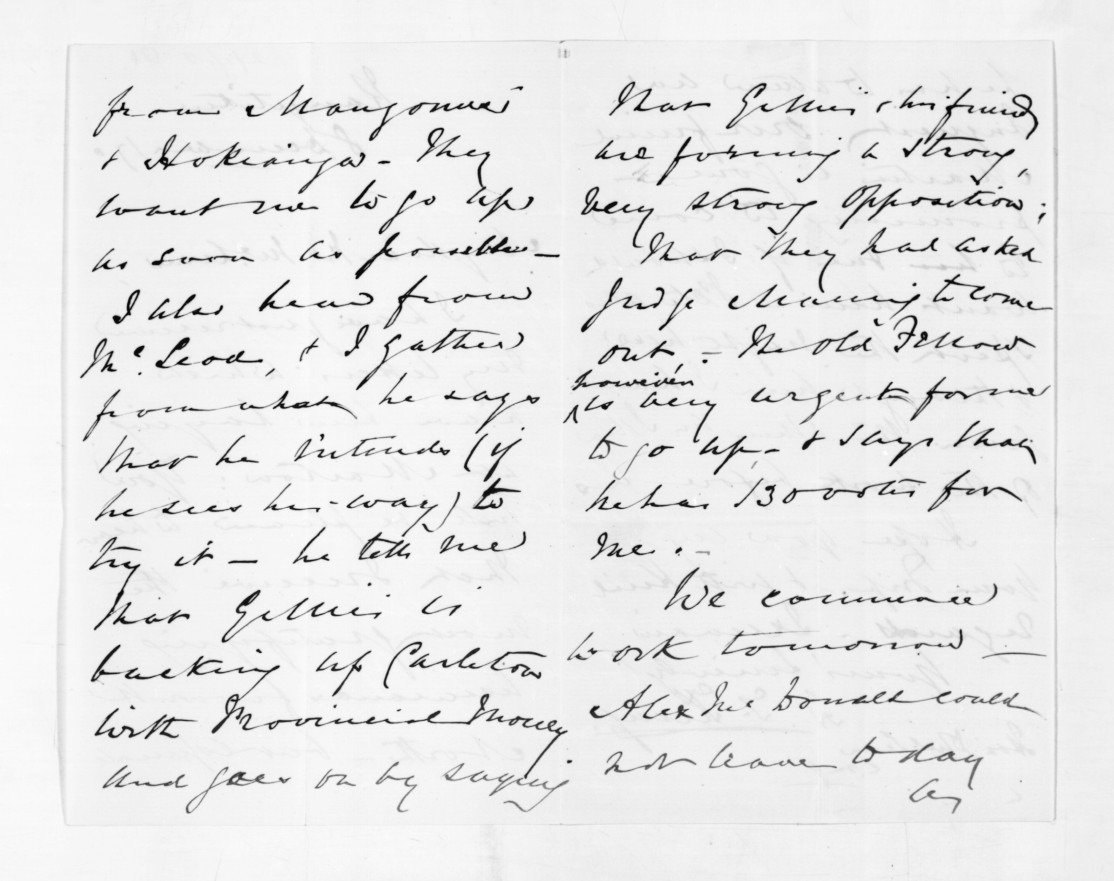 from Mangonui
& Hokianga - They
want me to go up
as soon as possible -
I also hear from
Mc. Leod, & I gather
from what he says
that he intends (if
he sees his way) to
try it - he tells me
that Gillies is
backing up Carleton
with Provincial Money
and goes on by saying
that Gillies & his friends
are forming a strong,
very strong opposition;
That they had asked
Judge Maning to come
out - The Old Fellow
however
is very urgent for me
to go up, & says that
he has 130 votes for
me. -
We commence
work tomorrow -
Alex McDonald could
not leave today
as